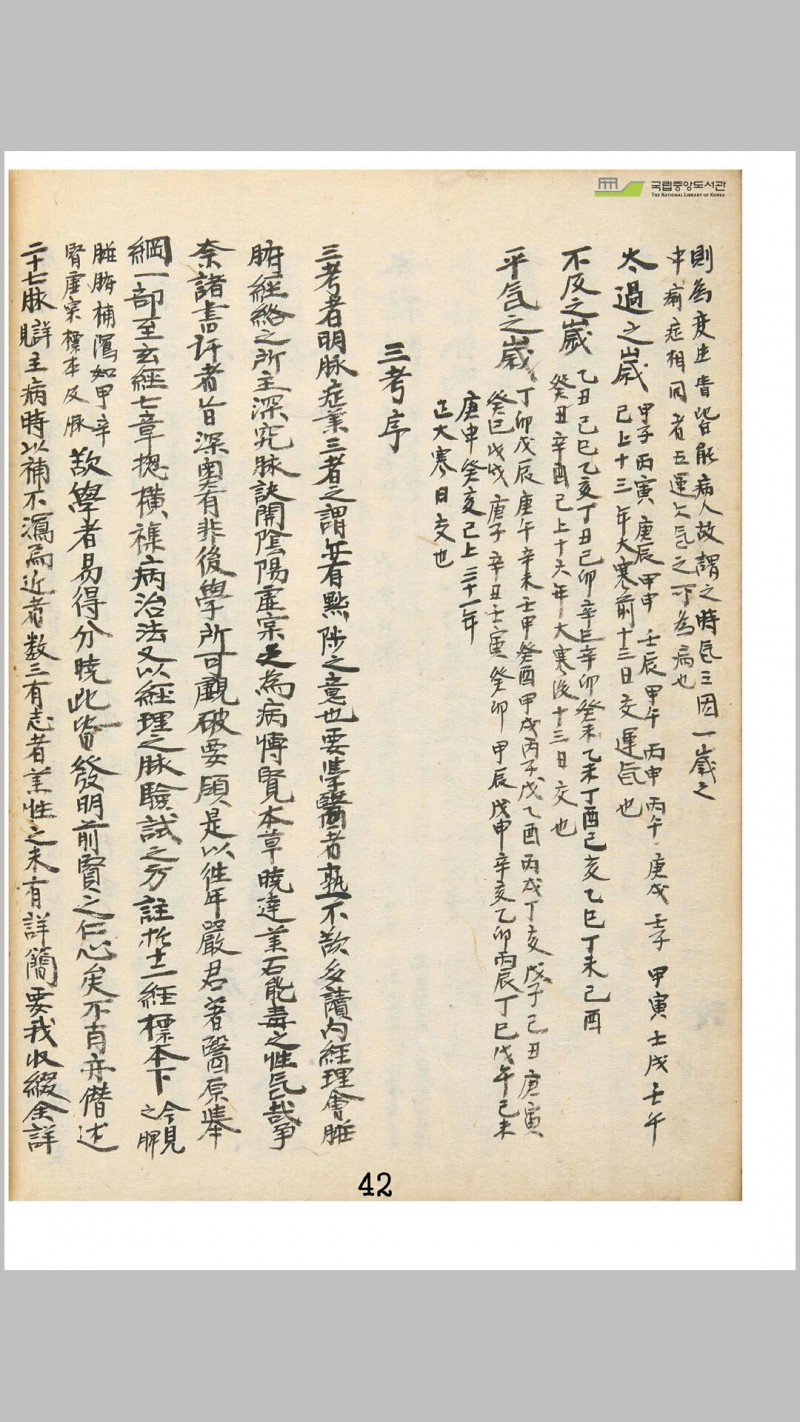 국립중앙도서관
THE NATIONAL LIBRARY OF KOREA
則為度也皆能病人故謂之時氣三因一歲之
中病症相同者五運六气之所為病也
太過之歲 甲子丙寅庚辰甲申壬辰甲午丙申丙午庚戌壬子甲寅壬戌壬午
已上十三年大寒前十三日交運氣也
不及之歲 乙丑己巳乙亥丁丑己卯辛巳辛卯癸未乙未丁酉己亥乙巳丁未己酉
癸丑辛酉已上十六年大寒後十三日交也
平气之歲 丁卯戊辰庚午辛未壬申癸酉甲戌丙子戊乙酉丙戌丁亥戊子己丑庚寅
癸巳戊戌庚子辛丑壬寅癸卯甲辰戊申辛亥乙卯丙辰丁巳戊午己未
庚申癸亥已上三十一年
正大寒日交也
三考序
三考者明脉症業三者之謂無有黙陟之意也要學醫者熟不欲多讀內經理會臟
腑經絡之所主深究脉訣開陰陽虛实之為病博覽本草曉達薬石能毒之性氣哉爭
奈諸書許者旨深奧有非後學所可覰破要領是以徃年嚴君著醫原集本
綱一部至玄經七章揔橫襍病治法又以經理之脉驗試之方註於十二經標本下 今見
之脾
臟腑補瀉如甲辛
腎虛实標本及脉 欲學者易得分曉此皆發明前賢之仁心矣不肖亦僭述
二十七脉辯主病時以補不瀉而近者数三有志者業性之未有詳簡要我收綴余詳
42